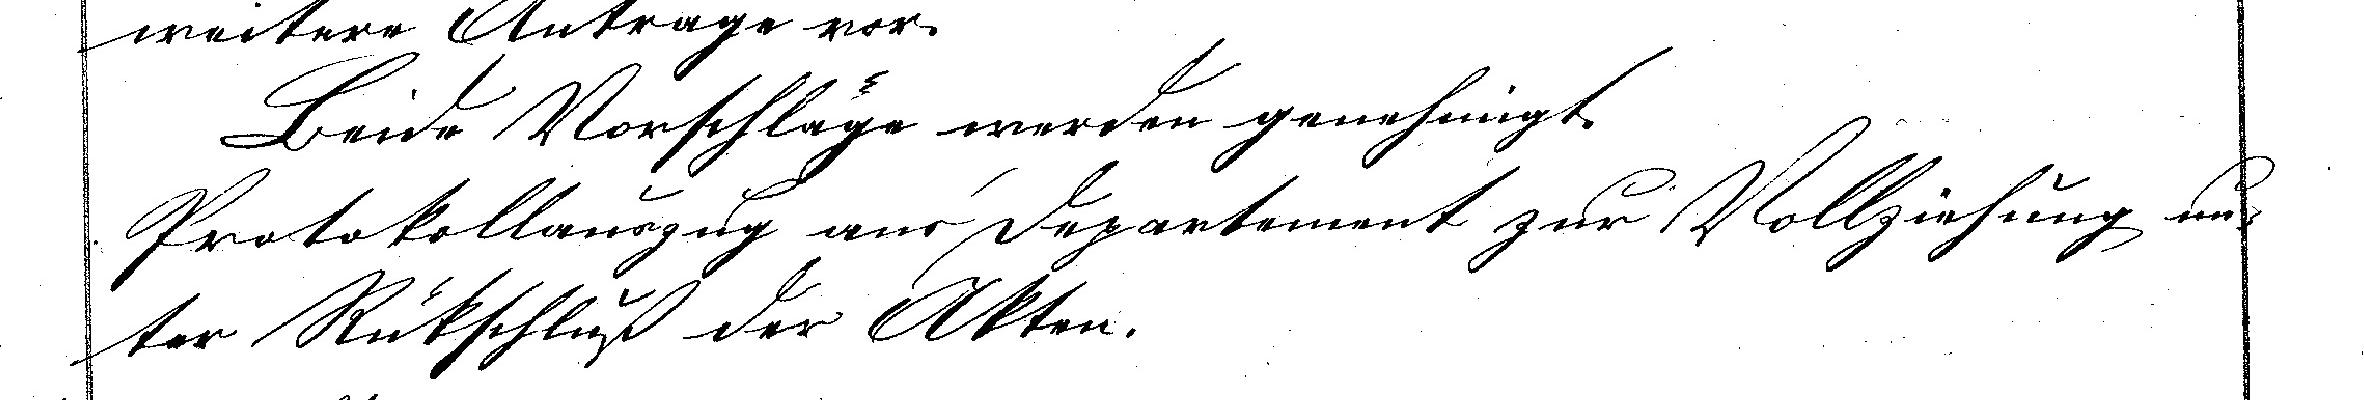 weitere Antrage vor.
Beide Vorschläge werden genehmigt.
Protokollauszug ans Departement zur Vollziehung un-
ter Rükschluß der Akten.